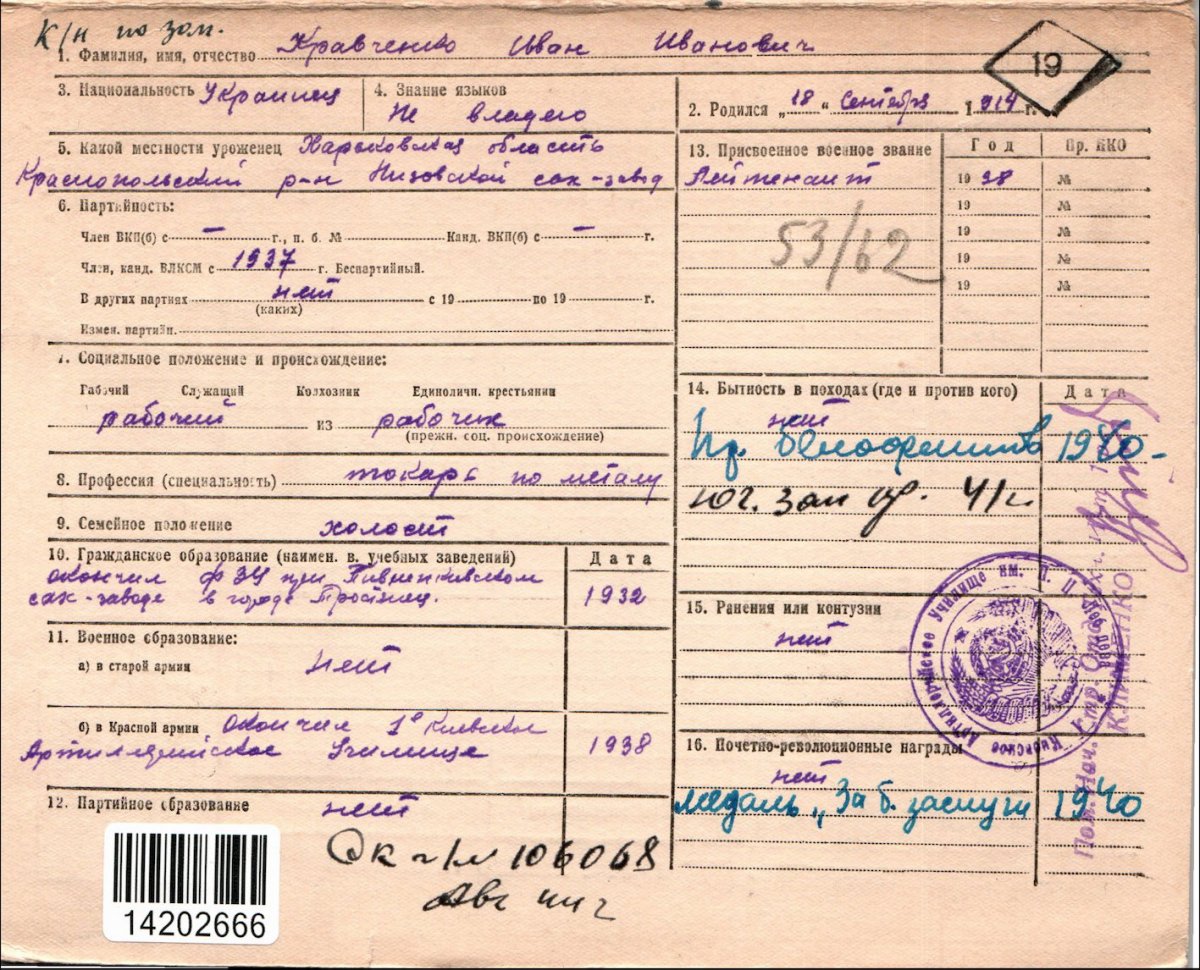 К/н по зап.
1. Фамилия, имя, отчество Кравченко Иван Иванович
19
3. Национальность Украинец
4. Знание языков
Не владею
2. Родился „18“ Сентября 1914 г.
5. Какой местности уроженец Харьковская область
Краснопольский р-н Низовской сах-завод
6. Партийность:
Член ВКП(б) с — г., п. б. № Канд. ВКП(б) с — г.
Член, канд. ВЛКСМ с 1937 г. Беспартийный.
В других партиях нет с 19 по 19 г.
(каких)
Измен. партийн.
7. Социальное положение и происхождение:
Рабочий Служащий Колхозник Единоличн. крестьянин
рабочий из рабочих
(прежн. соц. происхождение)
8. Профессия (специальность) токарь по металу
9. Семейное положение холост
10. Гражданское образование (наимен. в. учебных заведений)
Дата
окончил ФЗУ при
сах-заводе в городе Тростянец. 1932
11. Военное образование:
а) в старой армии нет
б) в Красной армии Окончил 1е Киевское
Артиллерийское Училище 1938
12. Партийное образование нет
13. Присвоенное военное звание
Год Пр. НКО
Лейтенант 1938 №
19 №
19 №
19 №
19 №
53/62
14. Бытность в походах (где и против кого)
Дата
нет
пр. Белофиннов 1940-
Юг. зап фр. 41 г.
15. Ранения или контузии
нет
16. Почетно-революционные награды
нет
медаль „За б. заслуги 1940
Киевское Артиллерийское Училище им. П. П. Лебедева
Пом. Нач.
КЛИМЕНКО
106068
14202666